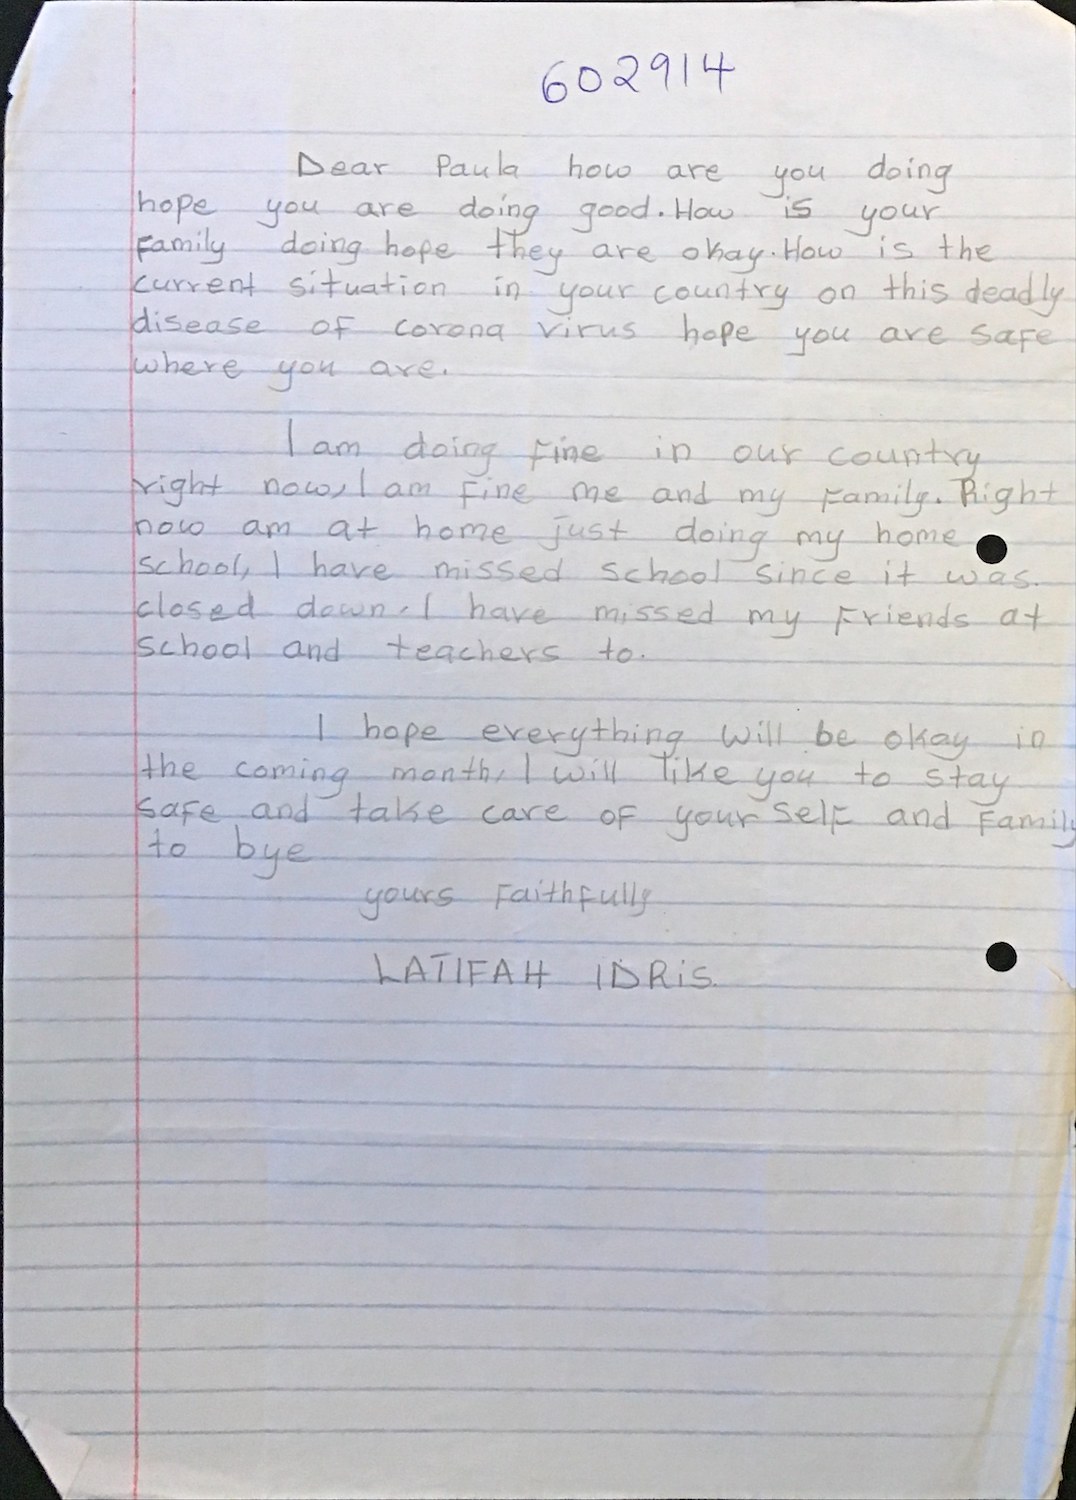 602914
Dear Paula how are you doing
hope you are doing good. How is your
family doing hope they are okay. How is the
current situation in your country on this deadly
disease of corona virus hope you are safe
where you are.
I am doing fine in our country
right now, I am fine me and my family. Right
now am at home just doing my home
school, I have missed school since it was.
closed down. I have missed my friends at
school and teachers to.
I hope everything will be okay in
the coming month, I will like you to stay
safe and take care of your self and family
to bye
yours faithfully
LATIFAH IDRiS.